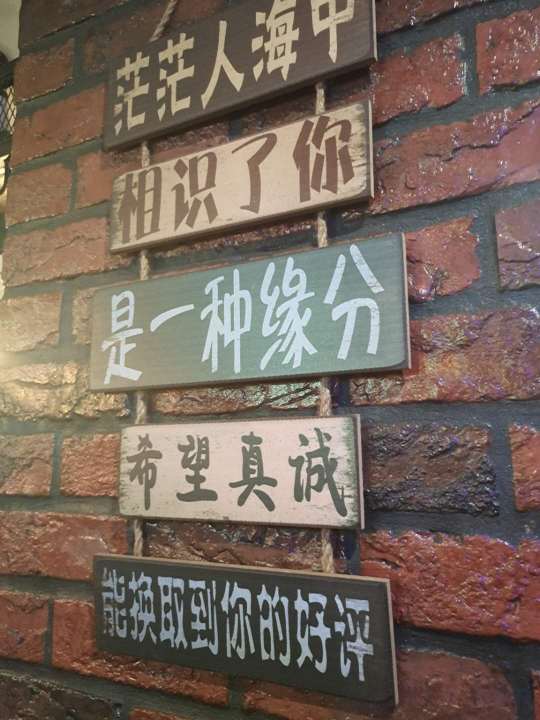 茫茫人海中
相识了你
是一种缘分
希望真诚
能换取到你的好评